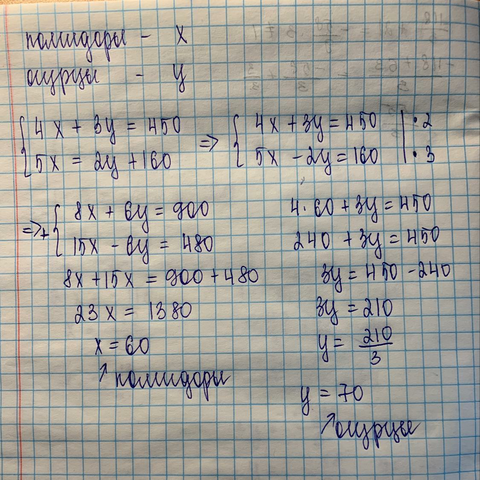 помидоры - x
огурцы - y
{ 4x + 3y = 450 => { 4x + 3y = 450 | · 2
{ 5x = 2y + 160 { 5x - 2y = 160 | · 3
=> + { 8x + 6y = 900
{ 15x - 6y = 480
8x + 15x = 900 + 480
23x = 1380
x = 60
↗ помидоры
4 · 60 + 3y = 450
240 + 3y = 450
3y = 450 - 240
3y = 210
y = 210/3
y = 70
↗ огурцы